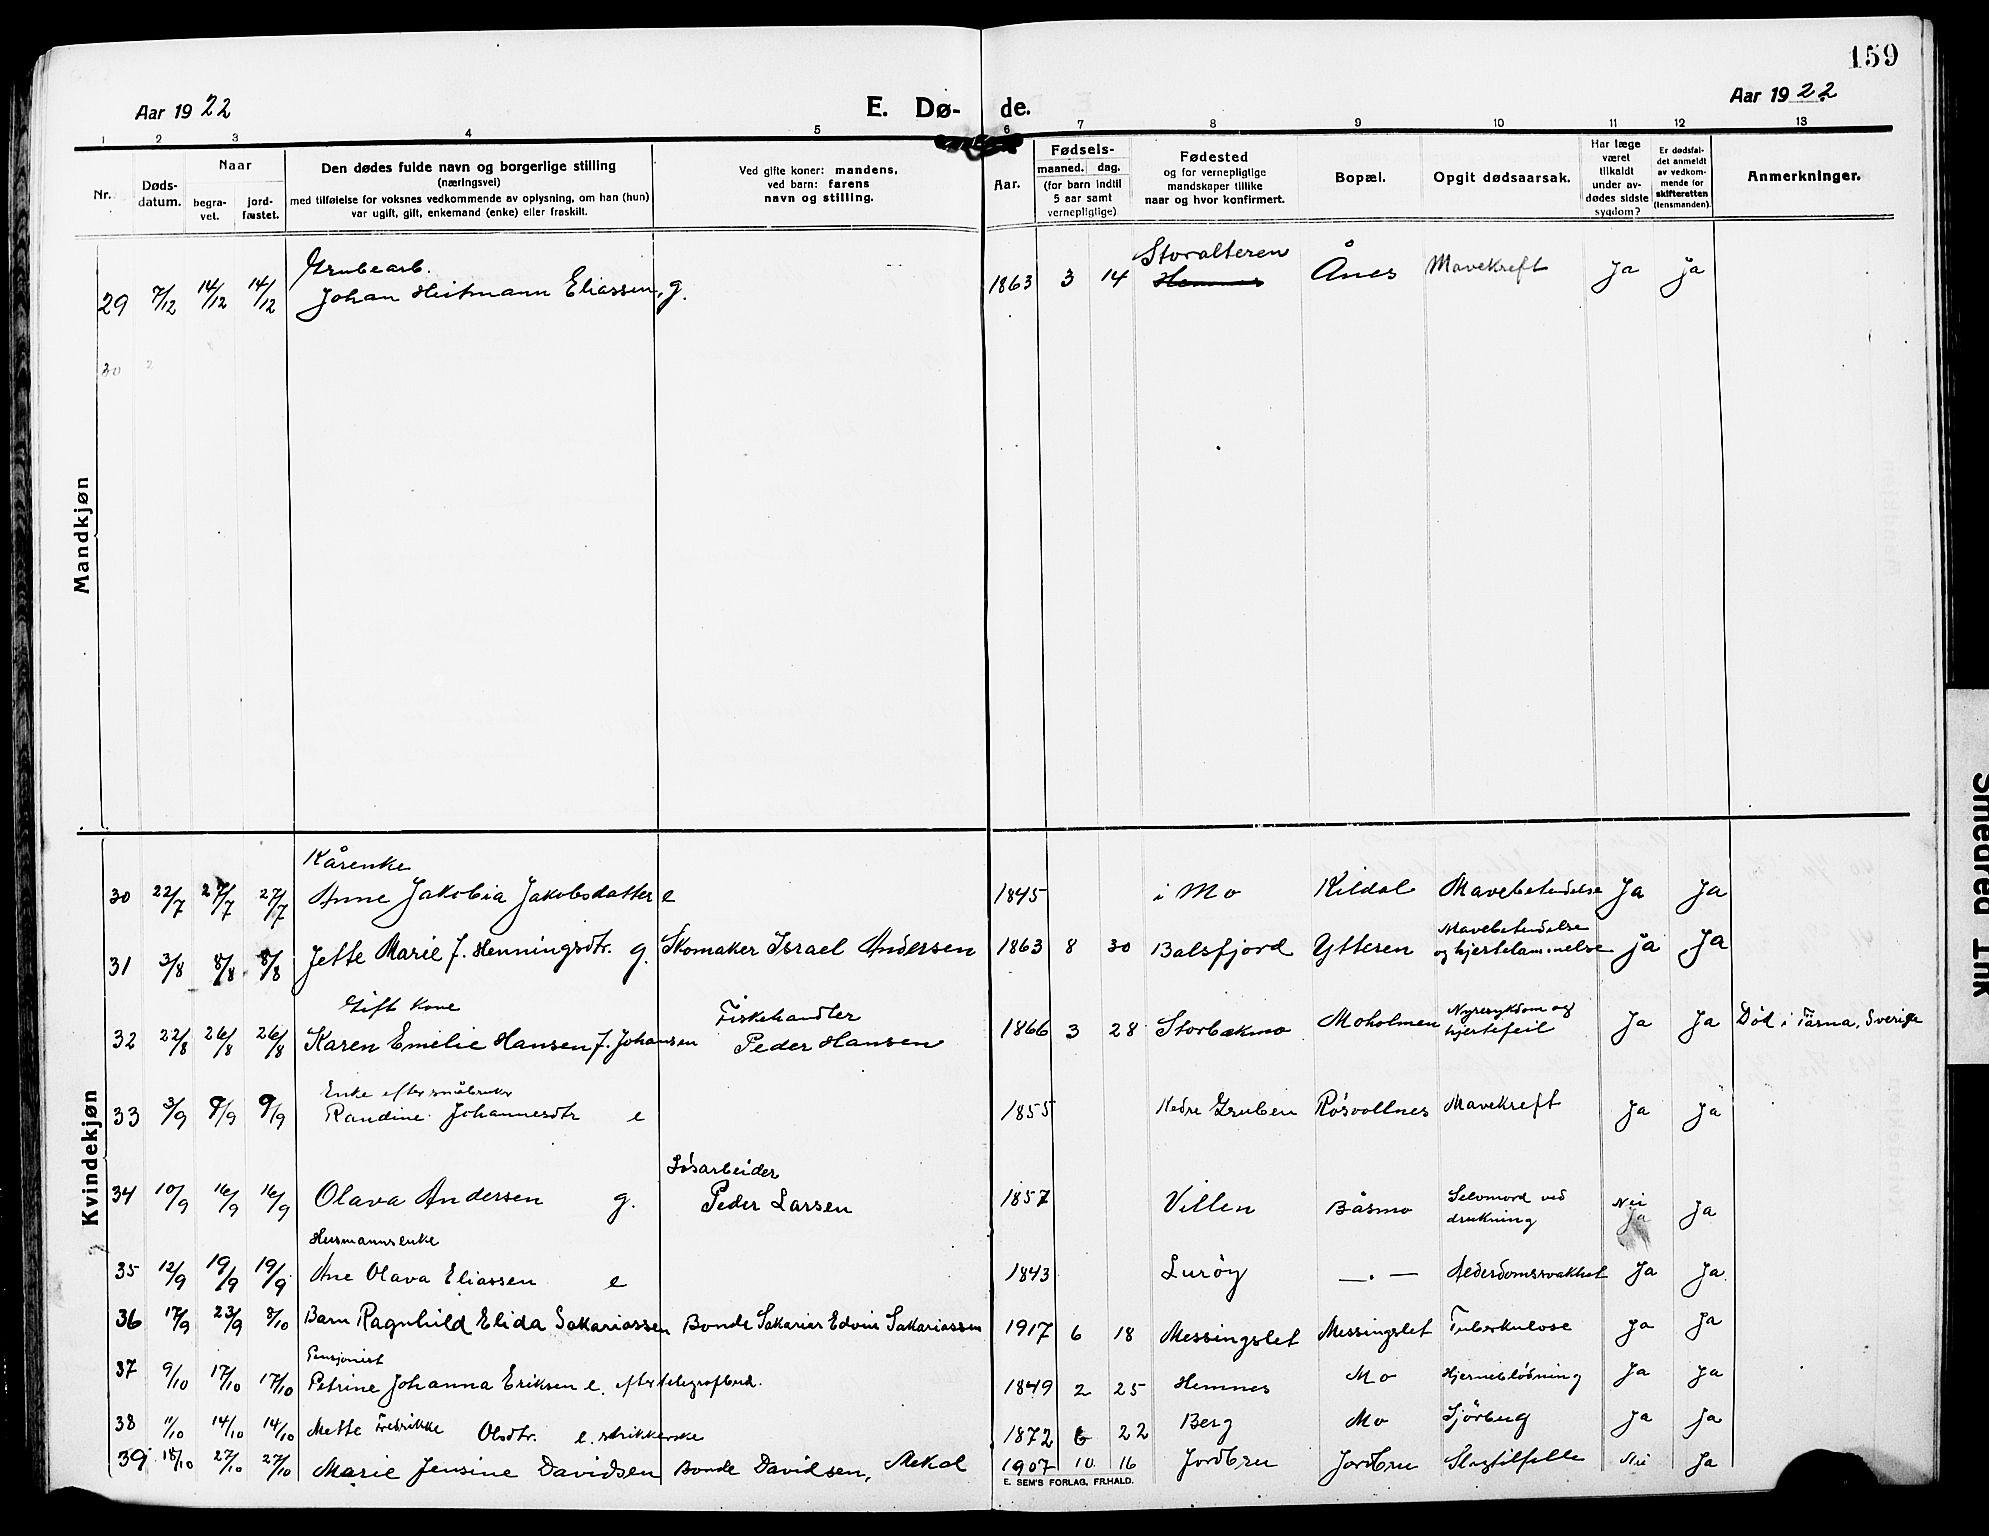 159
Aar 1922 E. Dø- de. Aar 1922
1 2 3 4 5 6 7 8 9 10 11 12 13
Nr. Døds-datum. Naar begra-vet. jord-fæstet. Den dødes fulde navn og borgerlige stilling (næringsvei) med tilføielse for voksnes vedkommende av oplysning, om han (hun) var ugift, gift, enkemand (enke) eller fraskilt. Ved gifte koner: mandens, ved barn: farens navn og stilling. Aar. Fødsels- maaned. dag. (for barn indtil 5 aar samt vernepligtige) Fødested og for vernepligtige mandskaper tillike naar og hvor konfirmert. Bopæl. Opgit dødsaarsak. Har læge været tilkaldt under av-dødes sidste sygdom? Er dødsfal-det anmeldt av vedkom-mende for skifteretten (lensmanden). Anmerkninger.
Mandkjøn
Grubearb. Storalteren
29 7/12 14/12 14/12 Johan Heitmann Eliassen, g. 1863 3 14 Hemnes Ånes Mavekreft Ja Ja
30 2
Kvindekjøn
Kårenke
30 22/7 27/7 27/7 Anne Jakobia Jakobsdatter e 1845 i Mo Kildal Mavebetendelse Ja Ja
31 3/8 8/8 8/8 Jette Marie f. Henningsdtr. g. Skomaker Israel Andersen 1863 8 30 Balsfjord Ytteren Mavebetendelse og hjertelammelse Ja Ja
Gift kone Fiskehandler
32 22/8 26/8 26/8 Karen Emelie Hansen f. Johansen Peder Hansen 1866 3 28 Storbækmo Moholmen Nyresykdom og hjertefeil Ja Ja Død i Tärna, Sverige
Enke efter småbruker
33 3/9 9/9 9/9 Randine Johannesdtr e 1855 Nedre Gruben Røsvoltnes Mavekreft Ja Ja
Løsarbeider
34 10/9 16/9 16/9 Olava Andersen g. Peder Larsen 1857 Villen Båsmo Selvmord ved drukning Nei Ja Ja
Husmannsenke
35 12/9 19/9 19/9 Ane Olava Eliassen e 1843 Lurøy —„— Alderdomssvakhet Ja Ja
36 17/9 23/9 8/10 Barn Ragnhild Elida Sakariassen Bonde Sakarias Edvin Sakariassen 1917 6 18 Messingslet Messingslet Tuberkulose Ja Ja
Pensjonist
37 9/10 17/10 17/10 Petrine Johanna Eriksen e. efter telegrafbud. 1849 2 25 Hemnes Mo Hjerneblødning Ja Ja
38 11/10 14/10 14/10 Mette Fredrikke Olsdtr. e. strikkerske 1872 6 22 Berg Mo Ja Ja
39 18/10 27/10 27/10 Marie Jensine Davidsen Bonde Davidsen, 1907 10 16 Jordbru Jordbru Slagtilfelle Nei Ja
E. SEM'S FORLAG, FR.HALD.
Smedred Ink